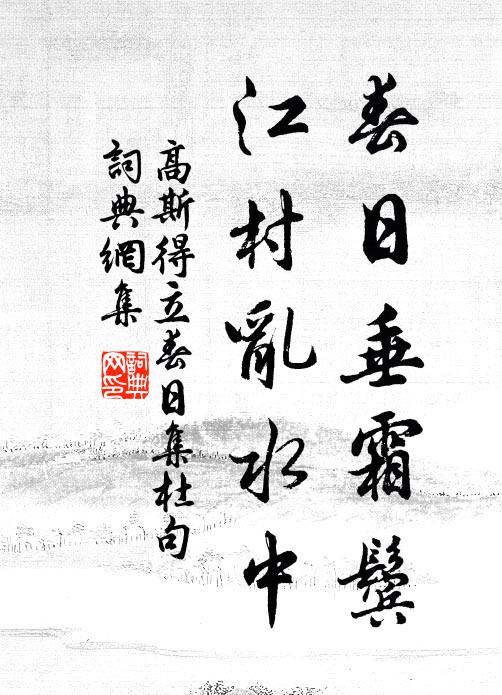 春日垂霜鬢
江村亂水中
高斯得立春日集杜句
詞典網集
詞典
网印